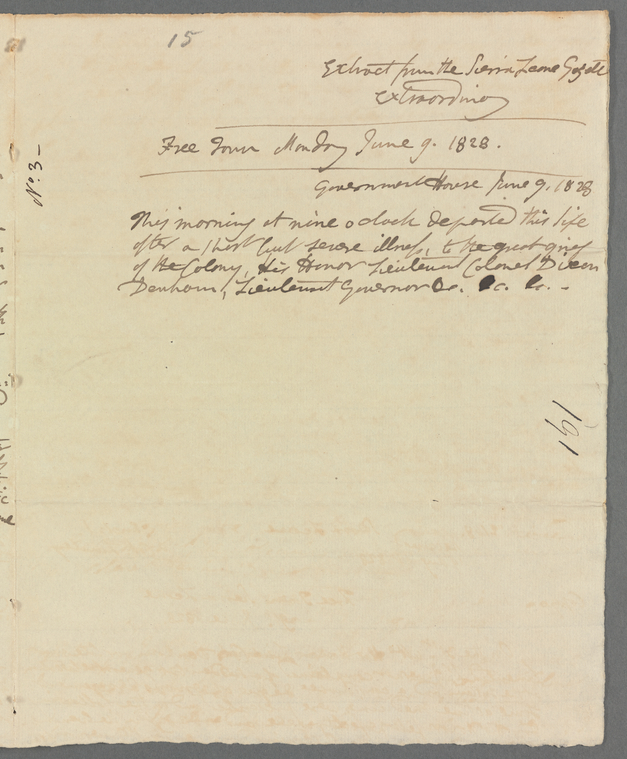 15
Extract from the Sierra Leone Gazette
Extraordinary
Free Town Monday June 9. 1828.
Government House June 9. 1828
This morning at nine o clock departed this life
after a short but severe illness, to the great grief
of the Colony, His Honor Lieutenant Colonel Dixon
Denham, Lieutenant Governor &c. &c. &c. -
No. 3 -
191